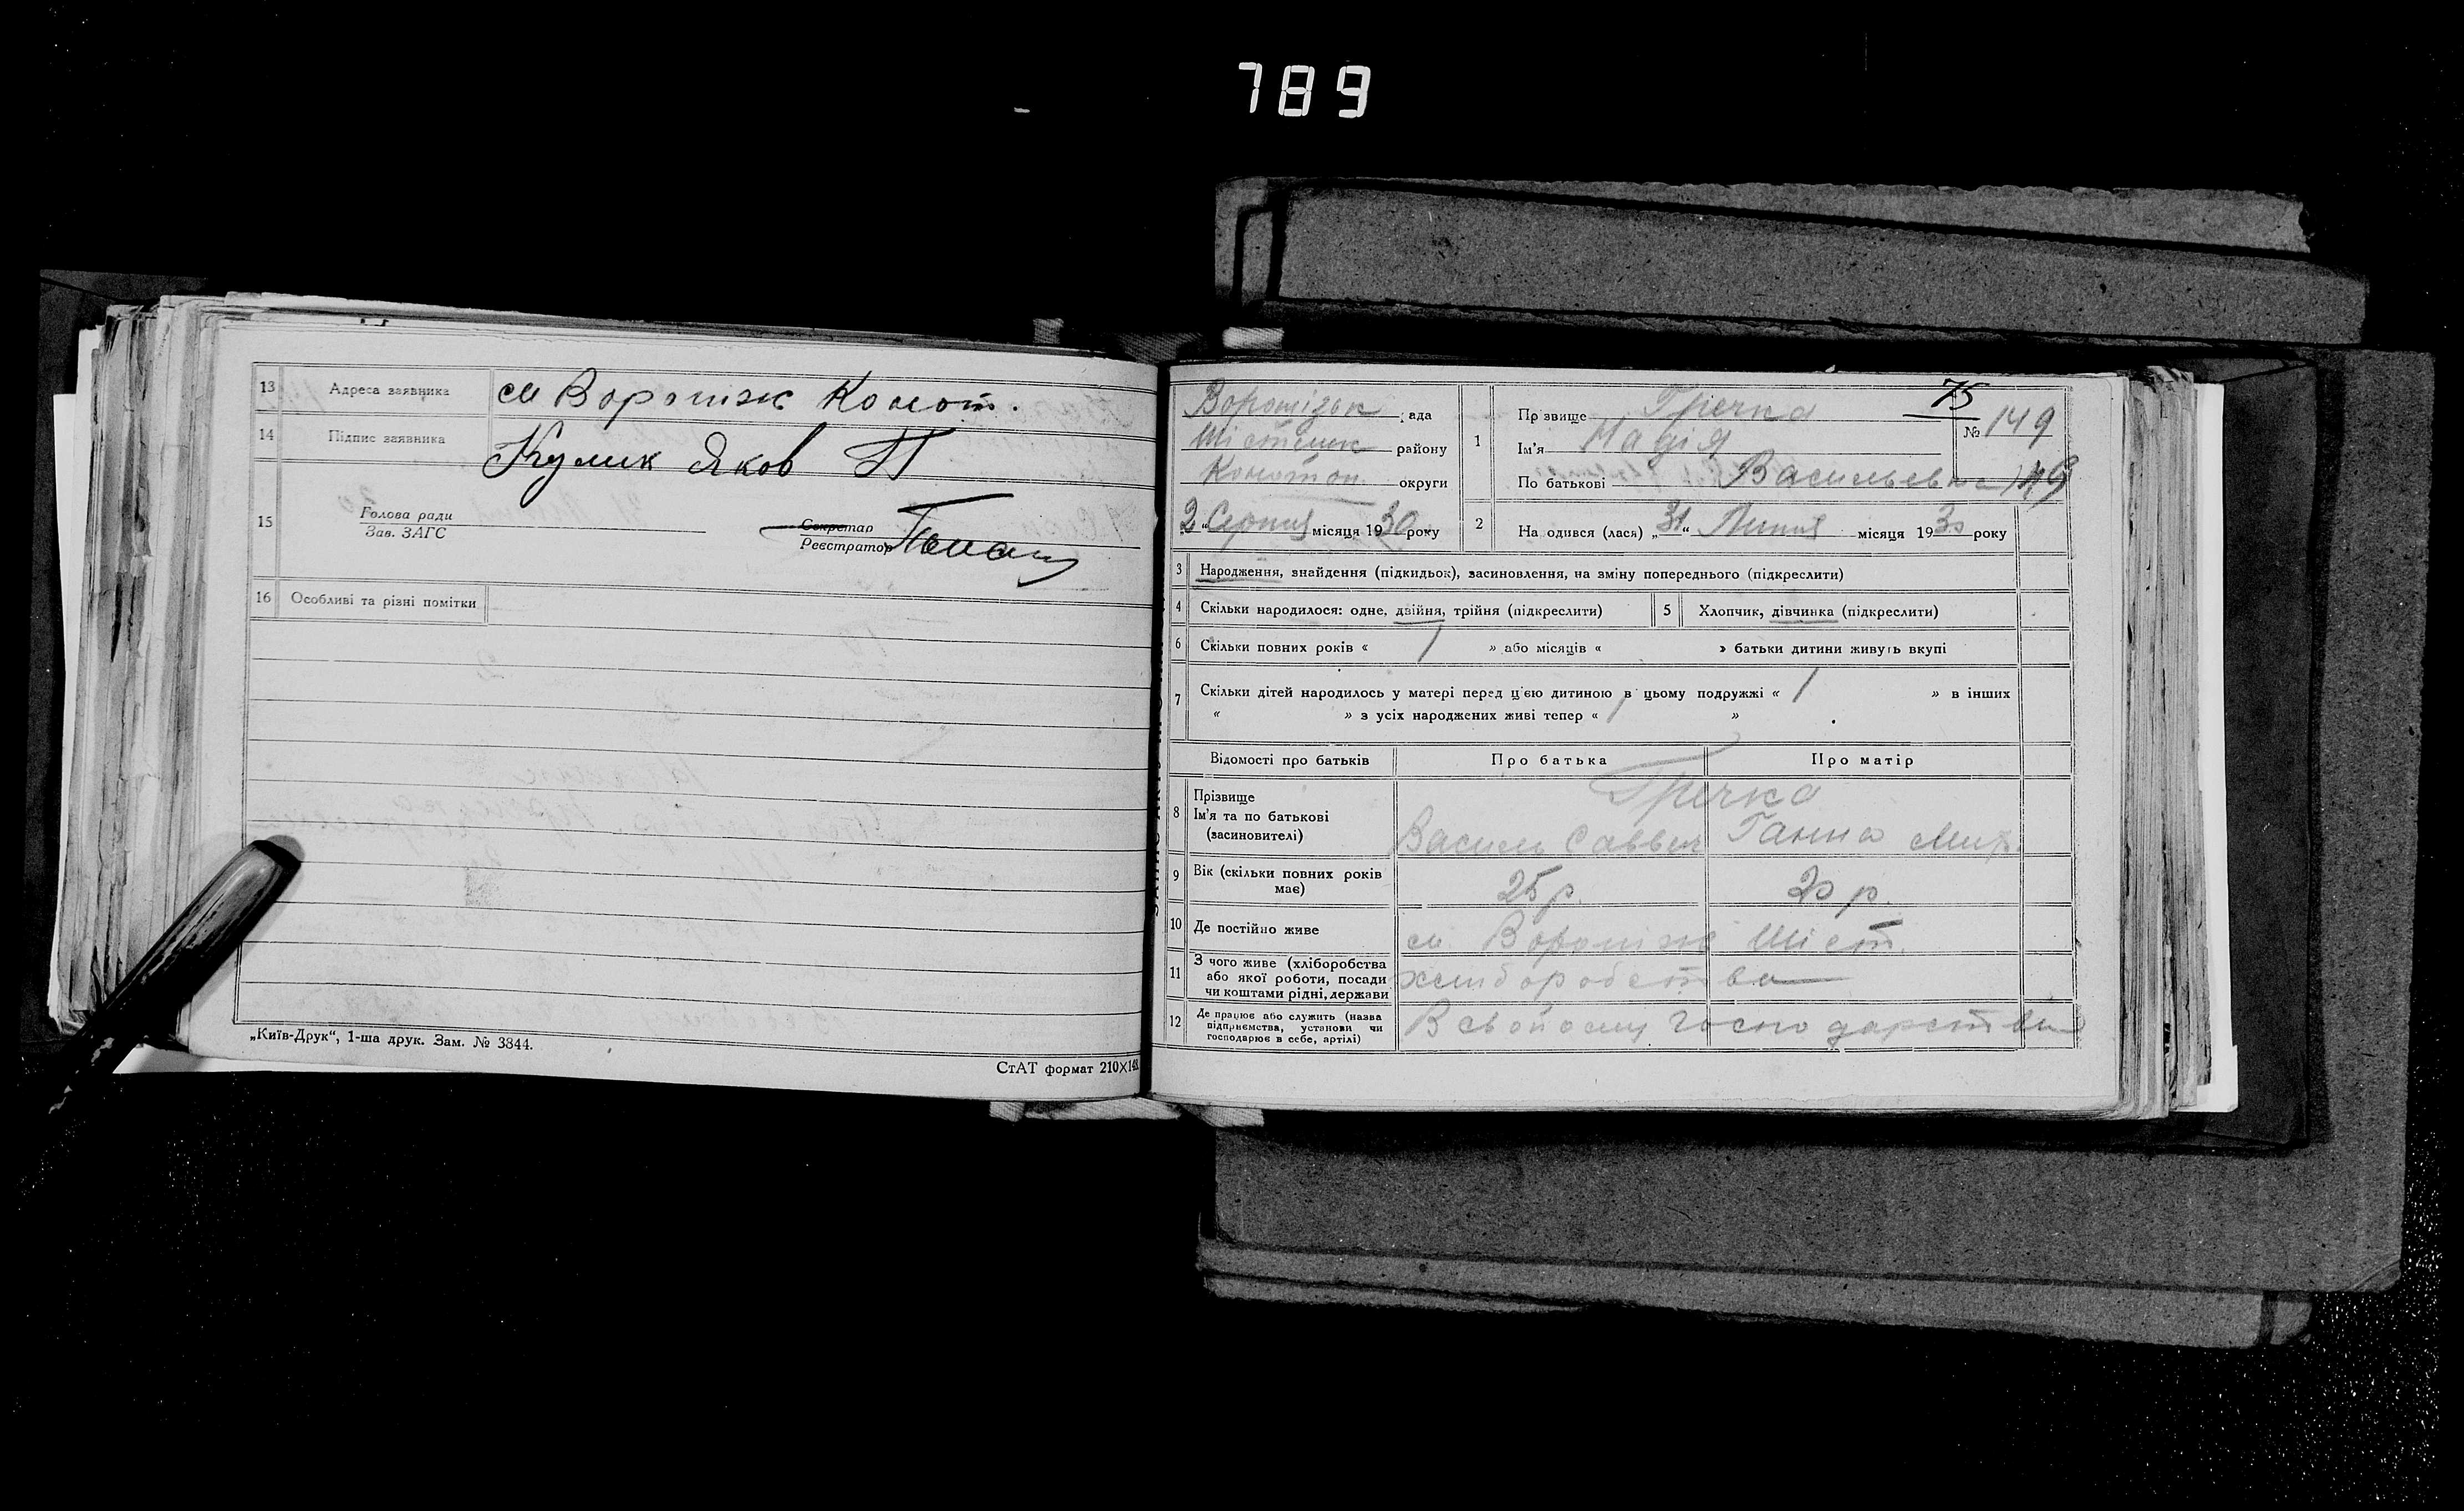 789
13 Адреса заявника см Вороніж Коном.
14 Підпис заявника Кулик Яков П
15 Голова ради
Зав. ЗАГС
Секретар
Реєстратор
16 Особливі та різні помітки
„Київ-Друк“, 1-ша друк. Зам. № 3844.
СтАТ формат 210×148
ада
району
Конотоп округи
2 „ Серпня місяця 1930 року
75
1 Пр звище Гречка
№ 149
Ім'я Надія
По батькові Васильевна 149
2 На одився (лася) „31“ Липня місяця 1930 року
3 Народження, знайдення (підкидьок), засиновлення, на зміну попереднього (підкреслити)
4 Скільки народилося: одне, двійня, трійня (підкреслити) 5 Хлопчик, дівчинка (підкреслити)
6 Скільки повних років « 1 » або місяців « » батьки дитини живуть вкупі
7 Скільки дітей народилось у матері перед ц'єю дитиною в цьому подружжі « 1 » в інших
« » з усіх народжених живі тепер « 1 »
Відомості про батьків Про батька Про матір
8 Прізвище Гречка
Ім'я та по батькові
(засиновителі) Василь Саввич Ганна Мит.
9 Вік (скільки повних років
має) 25 р. 20 р.
10 Де постійно живе см. Вороніж Шіст.
11 З чого живе (хліборобства
або якої роботи, посади
чи коштами рідні, держави хлиборобства
12 Де працює або служить (назва
підприємства, установи чи
господарює в себе, артілі) В свойому господарстви